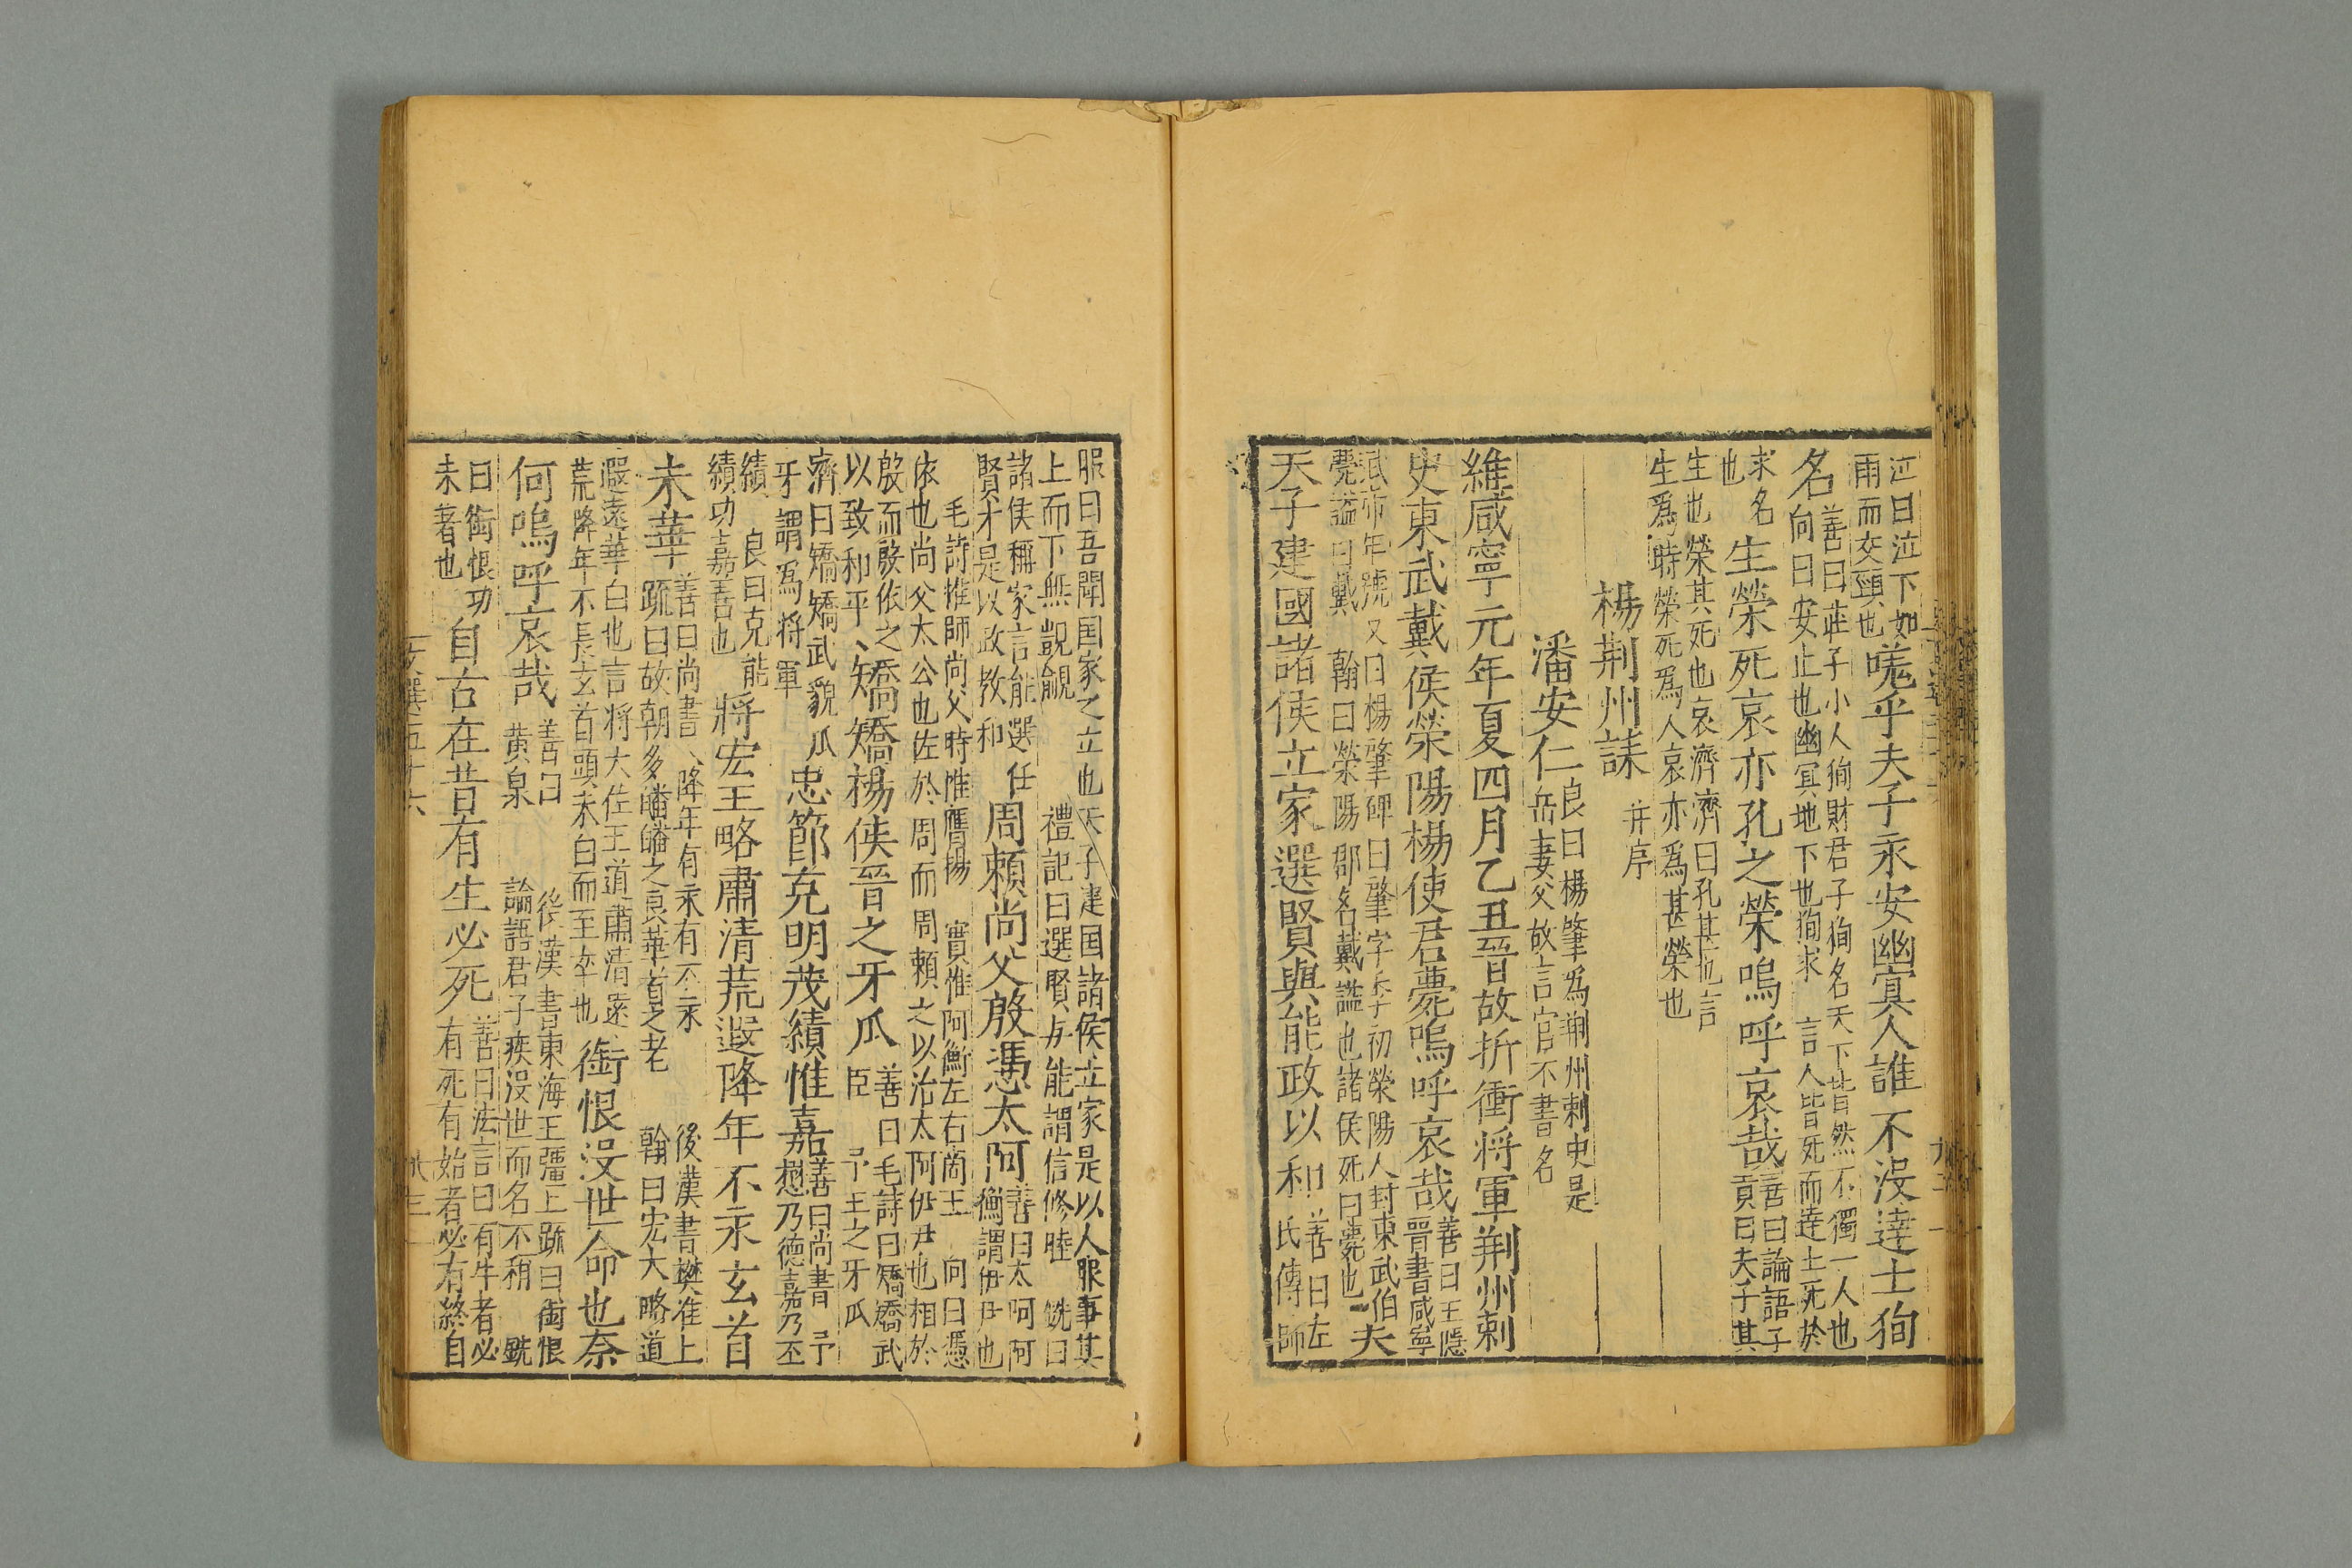 泣曰泣下如
雨而交頸也
嗟乎夫子永安幽冥人誰不没達士狥
名
善曰莊子小人狥財君子狥名天下皆然不獨一人也
向曰安止也幽冥地下也狥求 言人皆死而達士死於
求名
也
生榮死哀亦孔之榮嗚呼哀哉
善曰論語子
貢曰夫子其
生也榮其死也哀濟濟曰孔甚也言
生爲時榮死爲人哀亦爲甚榮也
楊荆州誄 并序
潘安仁
良曰楊肇爲荆州刺史是
岳妻父故言官不書名
維咸寧元年夏四月乙丑晉故折衝將軍荆州刺
史東武戴侯榮陽楊使君薨嗚呼哀哉
善曰王隱
晉書咸寧
武帝年號又曰楊肇碑曰肇字季初榮陽人封東武伯
薨謚曰戴 翰曰榮陽郡名戴謚也諸侯死曰薨也
夫
天子建國諸侯立家選賢與能政以和
善曰左
氏傳師
服曰吾聞国家之立也天子建国諸侯立家是以人服事其
上而下無覬覦 禮記曰選賢与能謂信修睦 銑曰
諸侯稱家言能選任
賢才是以政教和
周賴尚父殷憑太阿
善曰太阿阿
衡謂伊尹也
毛詩推師尚父時惟鷹揚 實惟阿衡左右商王 向曰憑
依也尚父太公也佐於周而周賴之以治太阿伊尹也相於
殷而殷依之
以致和平
矯矯楊侯晉之牙爪
善曰毛詩曰矯矯武
臣 予王之牙爪
濟曰矯矯武貌爪
牙謂爲將軍
忠節克明茂績惟嘉
善曰尚書 予
懋乃德嘉乃丕
績 良曰克能
績功嘉善也
將宏王略肅清荒遐降年不永玄首
未華
善曰尚書降年有永有不永 後漢書樊准上
疏曰故朝多皤皤之良華首之老 翰曰宏大略道
遐遠華白也言將大佐王道肅清遠
荒降年不長玄首頭未白而至卒也
銜恨没世命也奈
何嗚呼哀哉
善曰 後漢書東海王彊上疏曰銜恨
黄泉 論語君子疾没世而名不稱 銑
曰銜恨功
未著也
自古在昔有生必死
善曰法言曰有生者必
有死有始者必有終自
文選五十六